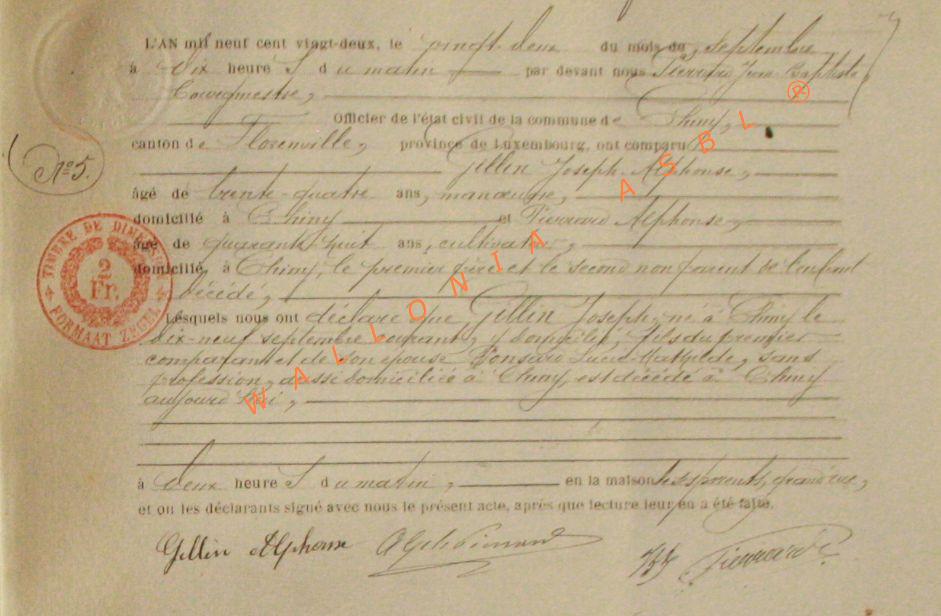 L'AN mil neuf cent vingt-deux, le vingt-deux du mois de septembre
à dix heure s du matin par devant nous Pierrard Jean Baptiste,
bourgmestre,
Officier de l'état civil de la commune de Chiny,
canton de Florenville, province de Luxembourg, ont comparu
Gillin Joseph-Alphonse,
N° 5.
âgé de trente-quatre ans, manœuvre,
domicilié à Chiny et Pierrard Alphonse,
âgé de quarante-huit ans, cultivateur,
domicilié, à Chiny, le premier père et le second non parent de l'enfant
décédé,
TIMBRE DE DIMENSION
2
Fr.
FORMAAT ZEGEL
Lesquels nous ont déclaré que Gillin Joseph, né à Chiny le
dix-neuf septembre courant, y domicilié, fils du premier
comparant et de son épouse Ponsard Lucie-Mathilde, sans
profession, aussi domiciliée à Chiny, est décédé à Chiny
aujourd'hui,
WALLONIA ASBL ®
à deux heure s du matin, en la maison de ses parents, grand'rue,
et ont les déclarants signé avec nous le présent acte, après que lecture leur en a été faite.
Gillin Alphonse Alph Pierrard JB Pierrard